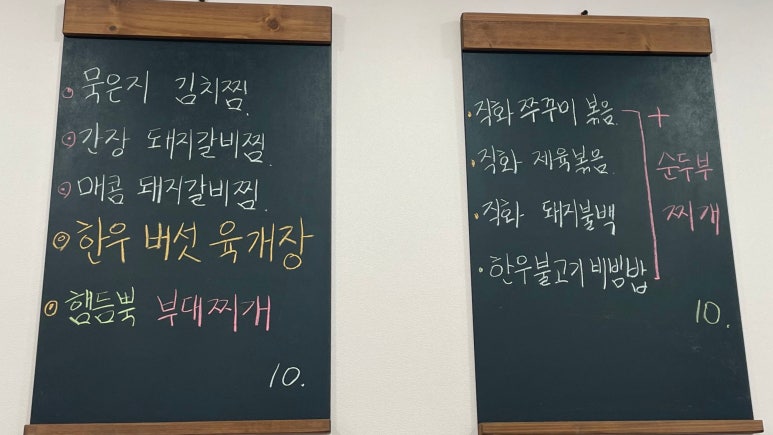 묵은지 김치찜.
간장 돼지갈비찜.
매콤 돼지갈비찜.
한우 버섯 육개장
햄듬뿍 부대찌개
10.
직화 쭈꾸미 볶음.
직화 제육볶음.
직화 돼지불백
한우불고기 비빔밥
+
순두부
찌개
10.